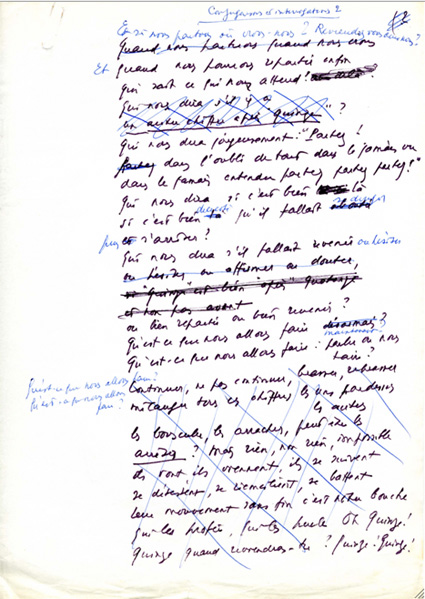 Conjugaisons et interrogations 2
Et si nous partons où irons-nous ? Reviendrez-vous
Quand nous partirons quand nous
Et quand nous serons repartis enfin
qui sait ce qui nous attend ?
Qui nous dira s'il y a
un autre chiffre après "Quinze" ?
Qui nous dira joyeusement : "Partez !
dans l'oubli de tout dans le jamais vu
dans le jamais entendu partez partez partez !"
Qui nous dira si c'est bien là
si c'est bien qu'il fallait
puis s'arrêter ?
Qui nous dira s'il fallait revenir ou hésiter
ou hésiter ou affirmer ou douter,
si "Quinze" est bien "après" Quatorze
et non pas avant
ou bien repartir ou bien revenir ?
Qu'est-ce que nous allons faire désormais ?
maintenant
Qu'est-ce que nous allons faire : parler ou nous
taire ?
Qu'est-ce que nous allons faire ?
Qu'est-ce que nous allons
faire ?
Continuer, ne pas continuer, brasser, rebrasser
mélanger tous ces chiffres les uns par-dessus
les autres
les bousculer, les arracher, peut-être les
arrêter ? Mais rien, non rien, impossible
ils vont ils viennent, ils se suivent
se détestent, se, se battent
leur mouvement sans fin c'est notre bouche
qui les profère, qui les hurle Oh Quinze !
Quinze quand reviendras-tu ? Quinze ! Quinze !